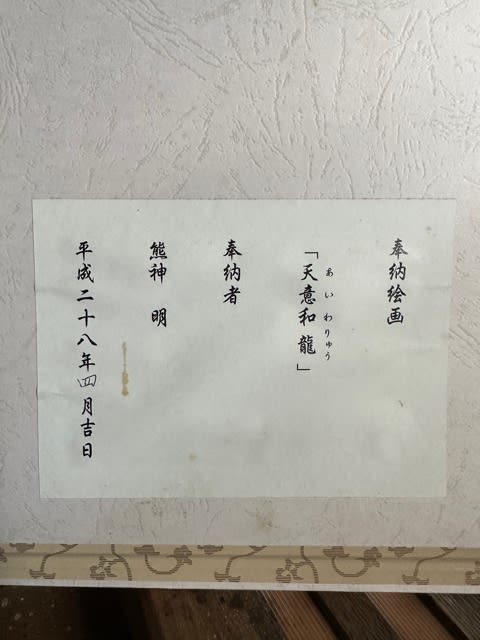 奉納絵画
「天意和龍」
あいわりゅう
奉納者
熊神 明
平成二十八年四月吉日